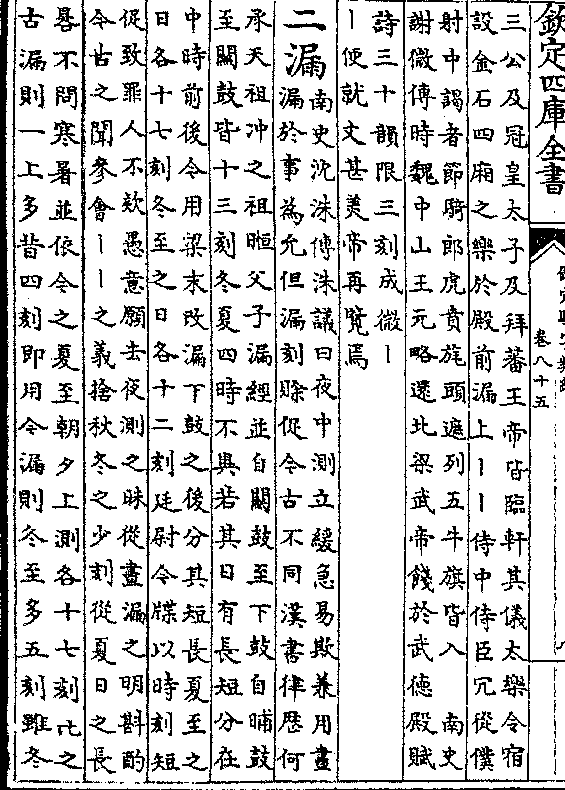 欽定四庫全書
卷八十五
三公及冠皇太子及拜蕃王帝皆臨軒其儀太樂令宿
設金石四廂之樂於殿前漏上丨丨侍中侍臣冗從僕
射中謁者節騎郎虎賁旄頭遮列五牛旗皆入 南史
謝微傳時魏中山王元略還北梁武帝餞於武德殿賦
詩三十韻限三刻成微丨
丨便就文甚美帝再覽焉
二漏 南史沈洙傳洙議曰夜中測立緩急易欺兼用晝
漏於事為允但漏刻賒促今古不同漢書律歷何
承天祖冲之祖暅父子漏經並自關鼓至下鼓自晡鼓
至關鼓皆十三刻冬夏四時不異若其日有長短分在
中時前後今用梁末改漏下鼓之後分其短長夏至之
日各十七刻冬至之日各十二刻廷尉今牒以時刻短
促致罪人不欵愚意願去夜測之昧從晝漏之明斟酌
今古之間參會丨丨之義捨秋冬之少刻從夏日之長
晷不問寒暑並依今之夏至朝夕上測各十七刻比之
古漏則一上多昔四刻即用今漏則冬至多五刻雖冬